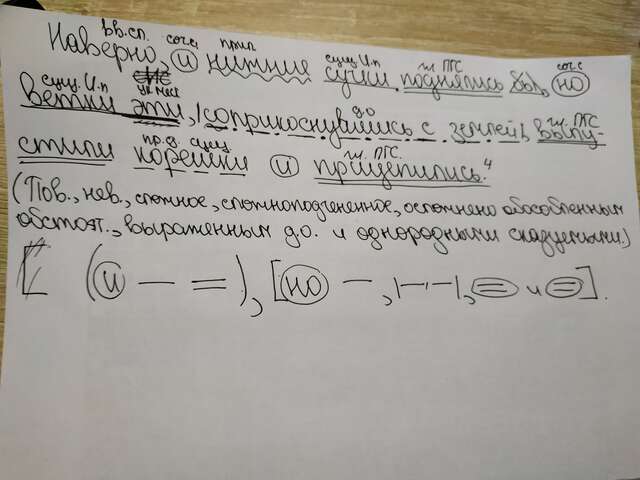 вв.сл. соч.с прил
сущ И.п гл. ПГС соч.с
Наверно, и нижние сучки поднялись бы, но
сущ. И.п ук мест д.о гл. ПГС
ветки эти, |соприкоснувшись с землей|, выпу-
пр.д. сущ. гл. ПГС.
стили корешки и прицепились.⁴
(Пов., нев., сложное, сложноподчиненное, осложнено обособленным
обстоят., выраженным д.о. и однородными сказуемыми.)
[ (и — =), [но —, |-·-·|, = и =].